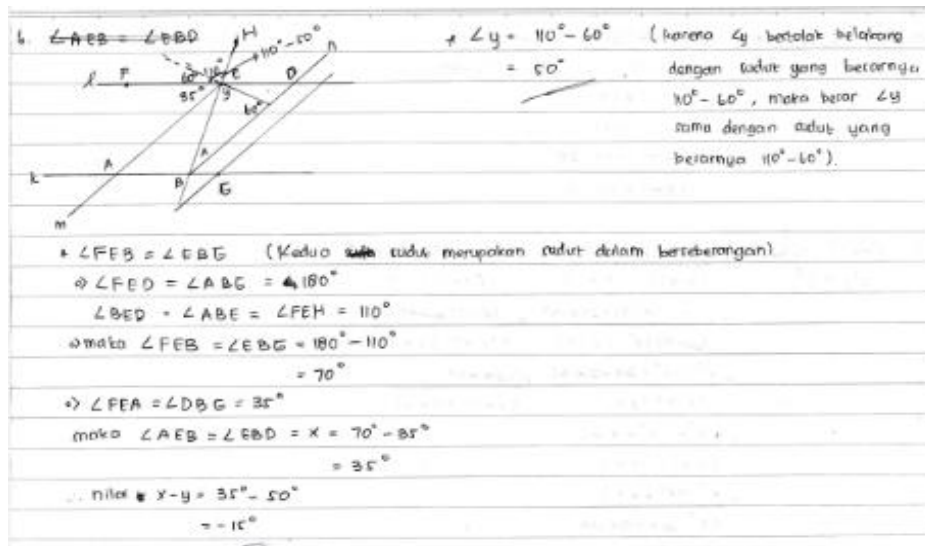 6. ∠AEB = ∠EBD
H
110°-50°
n
60°
110°
E
D
l
F
35°
y
60°
A
x
k
B
G
m
* ∠y = 110° - 60° (karena ∠y bertolak belakang
= 50° dengan sudut yang besarnya
110° - 60°, maka besar ∠y
sama dengan sudut yang
besarnya 110° - 60°).
* ∠FEB = ∠EBG (Kedua sudut merupakan sudut dalam berseberangan)
⇒ ∠FED = ∠ABG = 180°
∠BED = ∠ABE = ∠FEH = 110°
⇒ maka ∠FEB = ∠EBG = 180° - 110°
= 70°
⇒ ∠FEA = ∠DBG = 35°
maka ∠AEB = ∠EBD = x = 70° - 35°
= 35°
∴ nilai x - y = 35° - 50°
= -15°